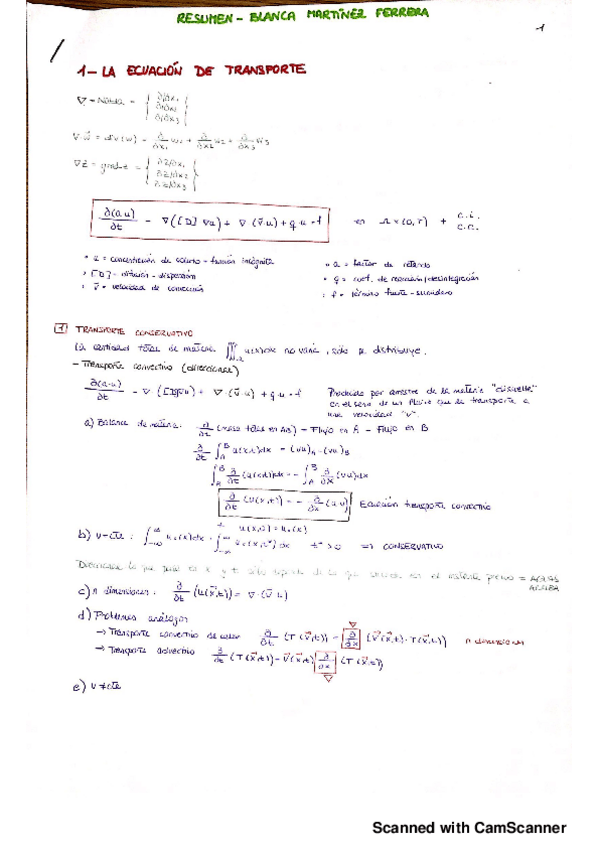 RESUMEN - BLANCA MARTÍNEZ FERRERA
1
1- LA ECUACIÓN DE TRANSPORTE
∇ = Nabla = { ∂/∂x₁ ∂/∂x₂ ∂/∂x₃ }
∇·w⃗ = div(w) = ∂/∂x₁ w₁ + ∂/∂x₂ w₂ + ∂/∂x₃ w₃
∇z = grad z = { ∂z/∂x₁ ∂z/∂x₂ ∂z/∂x₃ }
∂(a·u)/∂t - ∇([D]∇u) + ∇(v⃗·u) + q·u = f en Ω×(0,T) + c.i. c.c.
• u = concentración de soluto - función incógnita • a = factor de retardo
• [D] - difusión - dispersión • q = coef. de reacción/desintegración
• v⃗ = velocidad de convección • f = término fuente - sumidero
1 TRANSPORTE CONSERVATIVO
La cantidad total de materia no varía, sólo se distribuye.
- Transporte convectivo (direccional)
∂(a·u)/∂t - ∇([D]∇u) + ∇(v⃗·u) + q·u = f Producido por arrastre de la materia "disuelta"
en el seno de un fluido que la transporta a
una velocidad "v".
a) Balance de materia: ∂/∂t (masa total en AB) = Flujo en A - Flujo en B
∂/∂t ∫_A^B u(x,t)dx = (vu)_A - (vu)_B
∫_A^B ∂/∂t (u(x,t))dx = - ∫_A^B ∂/∂x (vu)dx
∂/∂t (u(x,t)) = - ∂/∂x (u·v) Ecuación transporte convectivo
u(x,0) = u₀(x)
b) v=cte : ∫_{-∞}^{∞} u₀(x)dx = ∫_{-∞}^{∞} u(x,t*)dx t*>0 ⇒ CONSERVATIVO
c) n dimensiones: ∂/∂t (u(x⃗,t)) = ∇·(v⃗·u)
d) Problemas análogos
→ Transporte convectivo de calor ∂/∂t (T(x⃗,t)) = ∂/∂x (v(x⃗,t)·T(x⃗,t)) n dimensiones
∇
→ Transporte advectivo ∂/∂t (T(x⃗,t)) = v(x⃗,t) ∂/∂x (T(x⃗,t))
∇
e) v≠cte
Scanned with CamScanner